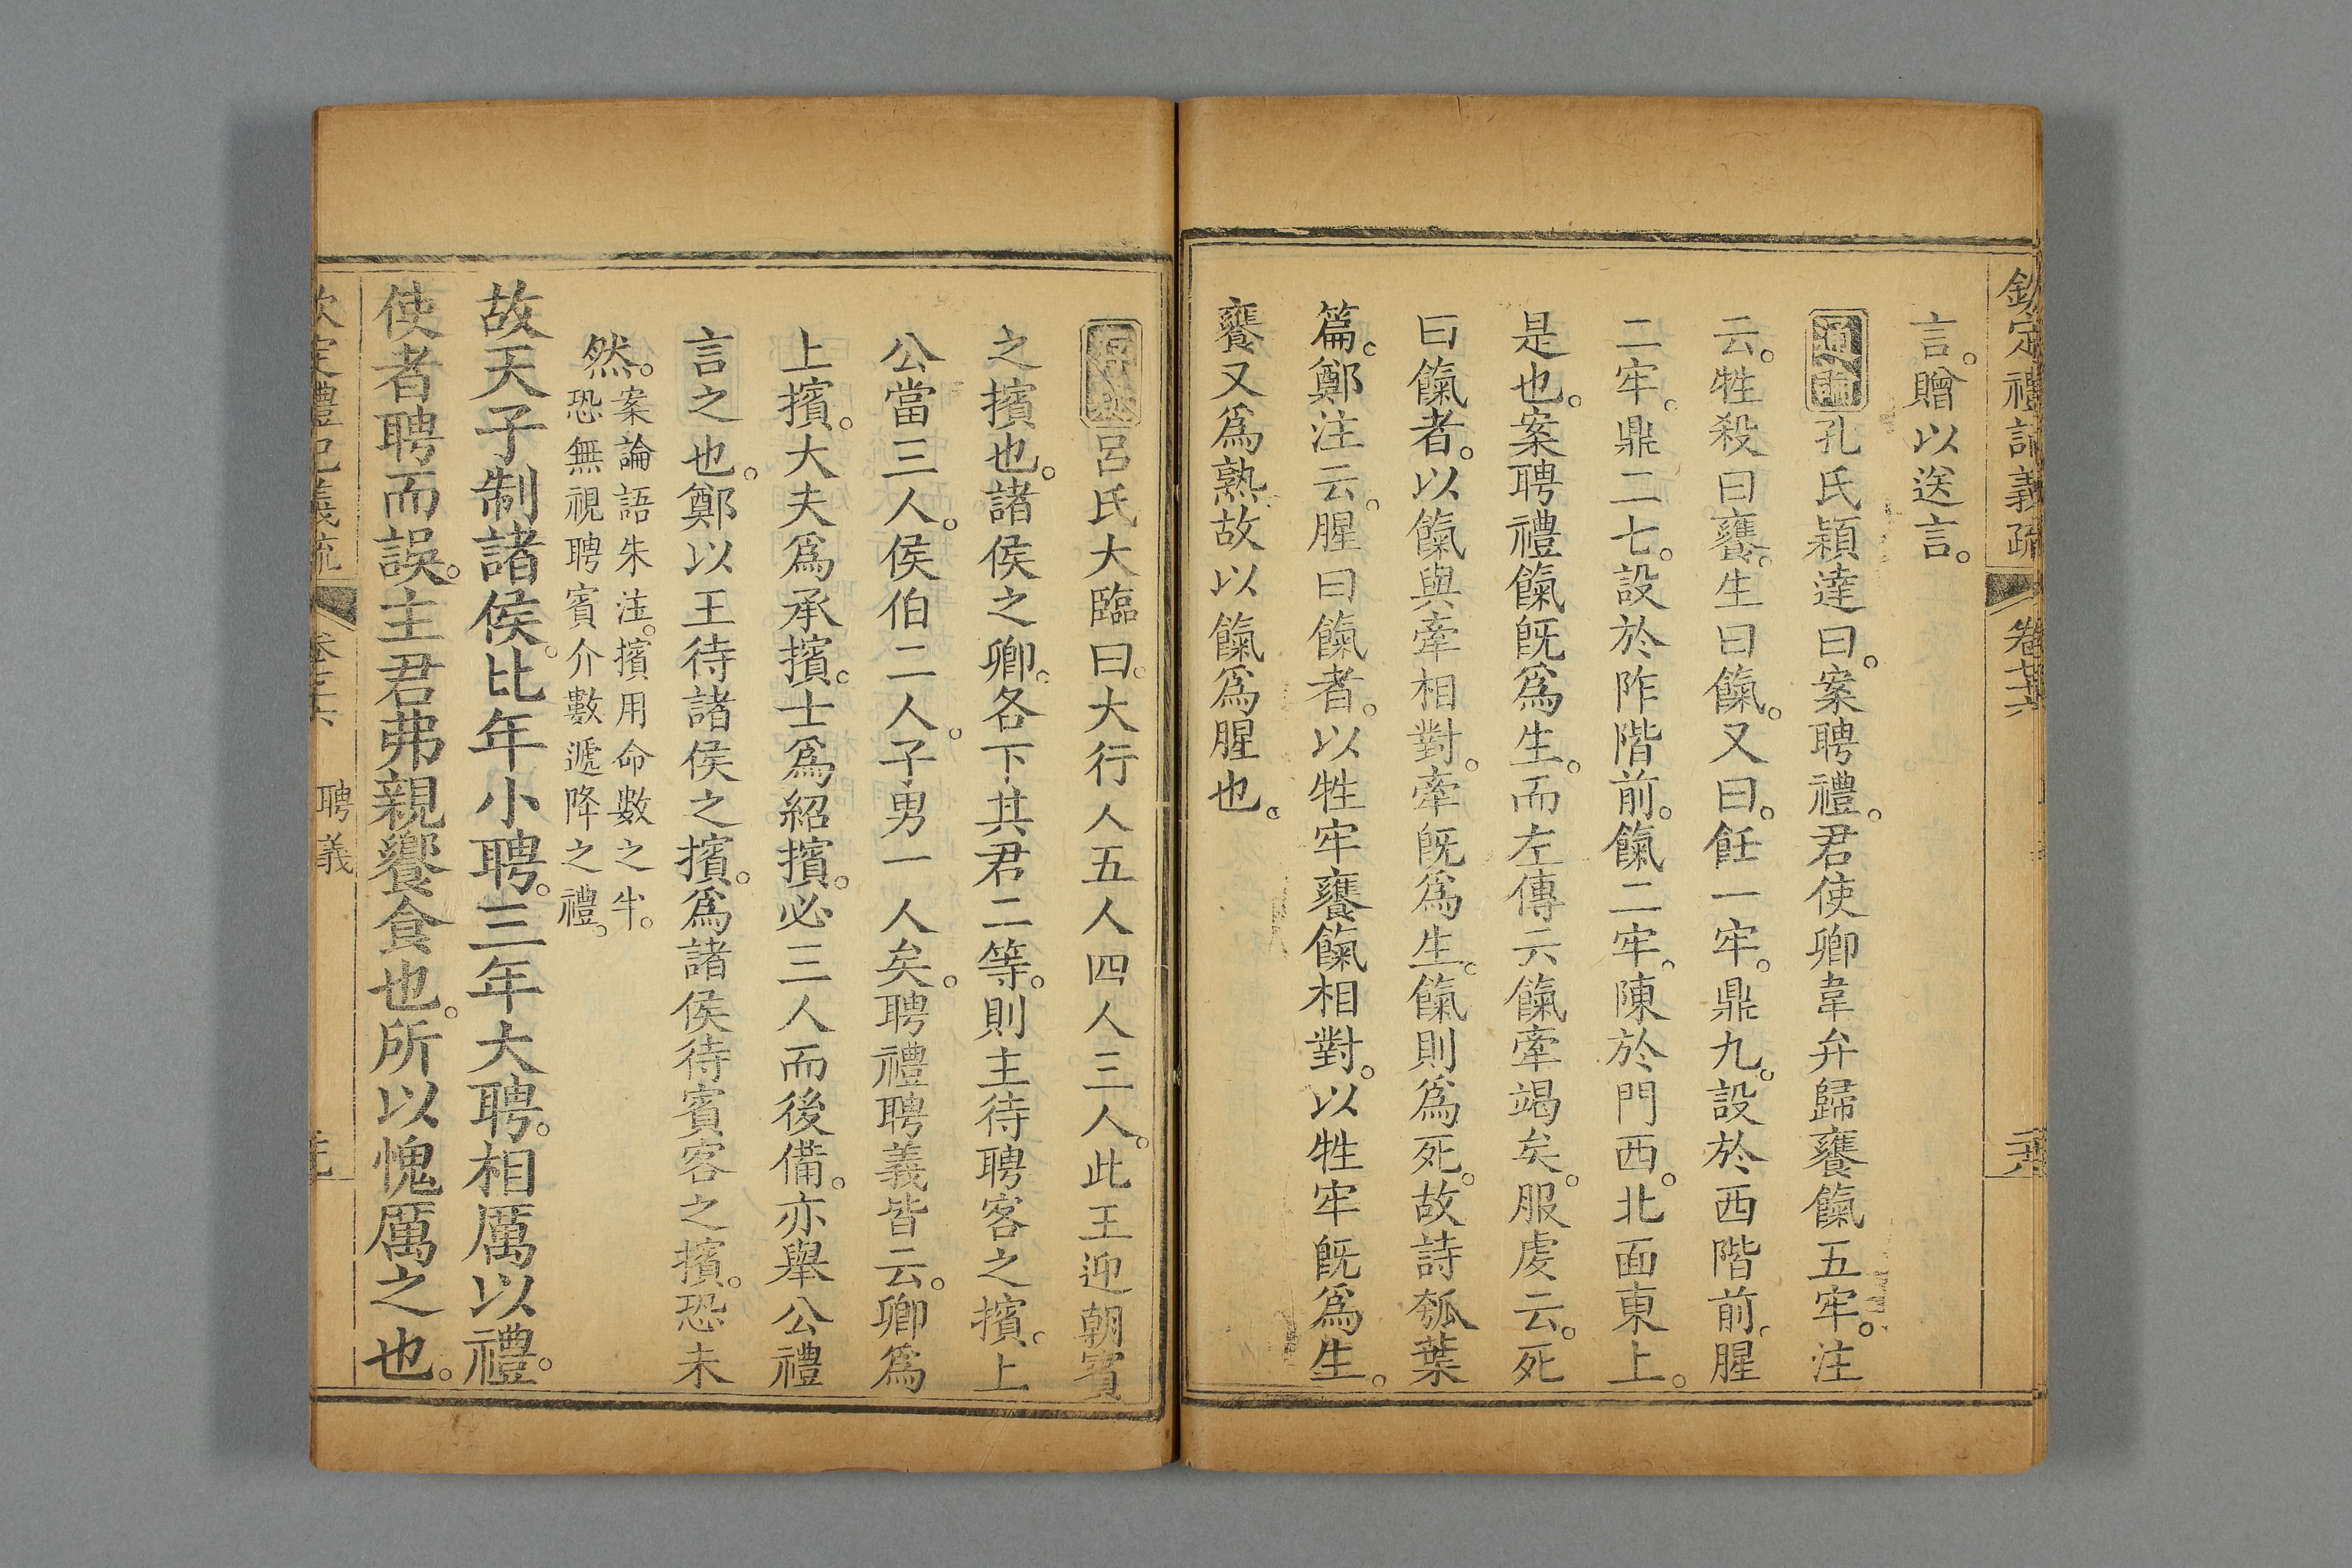 欽定禮記義疏 卷七十六
言。贈以送言。
通論 孔氏穎達曰。案聘禮。君使卿韋弁歸饔餼五牢。注
云。牲殺曰饔。生曰餼。又曰。飪一牢。鼎九。設於西階前。腥
二牢。鼎二七。設於阼階前。餼二牢。陳於門西。北面東上。
是也。案聘禮餼旣爲生。而左傳云餼牽竭矣。服虔云。死
曰餼者。以餼與牽相對。牽旣爲生。餼則爲死。故詩瓠葉
篇。鄭注云。腥曰餼者。以牲牢饔餼相對。以牲牢旣爲生。
饔又爲熟故以餼爲腥也。
呂氏大臨曰。大行人五人四人三人。此王迎朝賓
之擯也。諸侯之卿。各下其君二等。則主待聘客之擯。上
公當三人。侯伯二人。子男一人矣。聘禮聘義皆云。卿爲
上擯。大夫爲承擯。士爲紹擯。必三人而後備。亦舉公禮
言之也。鄭以王待諸侯之擯。爲諸侯待賓客之擯。恐未
然。案論語朱注。擯用命數之半。
恐無視聘賓介數遞降之禮。
故天子制諸侯。比年小聘。三年大聘。相厲以禮。
使者聘而誤。主君弗親饗食也。所以愧厲之也。
聘義